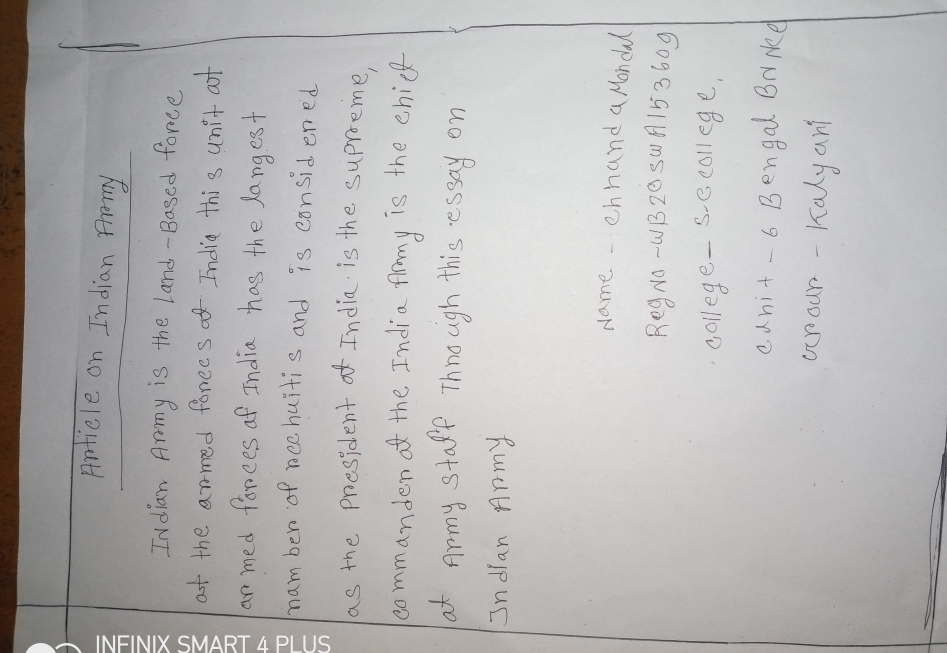 Article on Indian Army
Indian Army is the Land-Based force
at the armed forces at India this unit at
armed forces of India has the largest
nam ber of recruitis and is considered
as the President of India is the supreme,
commander at the India Army is the chief
at Army staff Through this essay on
Indian Army
Name - Chhanda Mondal
Reg No -WB20SWA153609
College - S.S college,
Unit - 6 Bengal BN NCC
Group - Kalyani
INFINIX SMART 4 PLUS